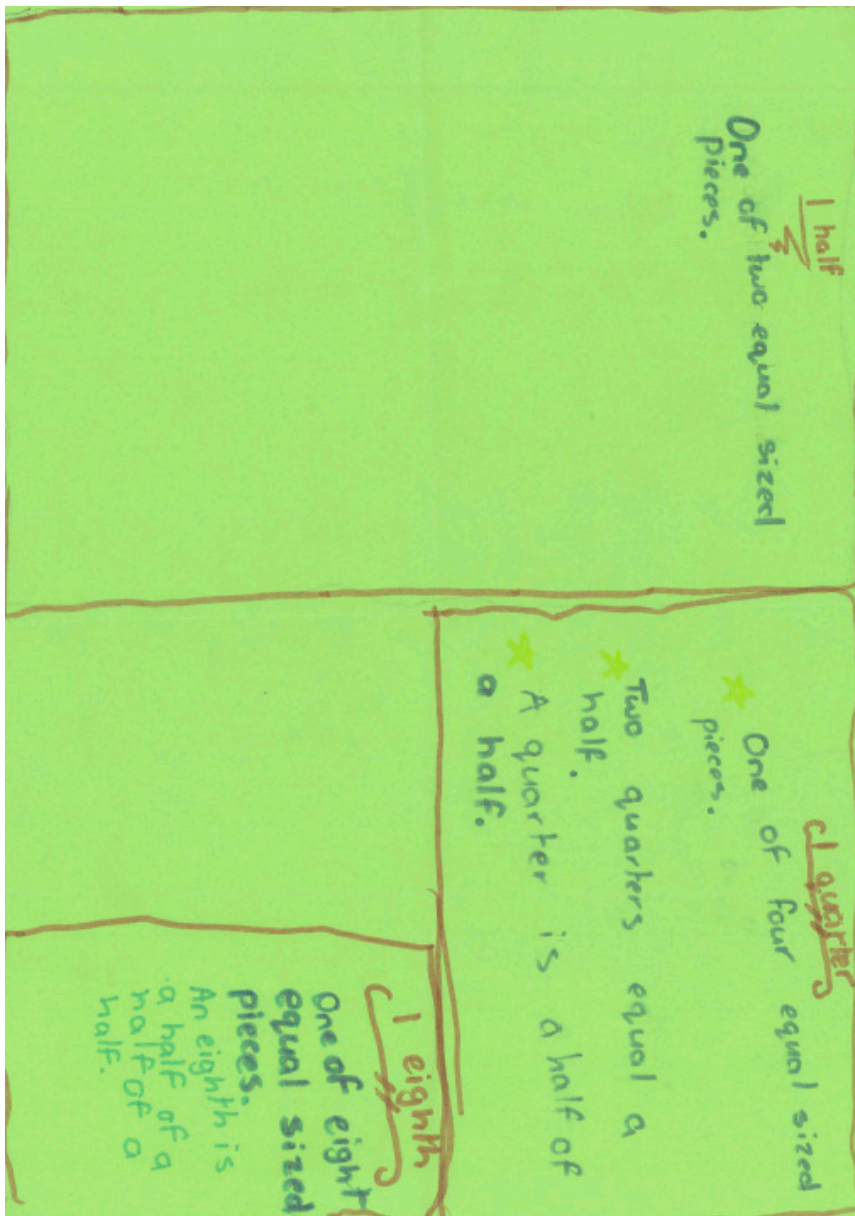 1 half
One of two equal sized
pieces.
1 quarter
One of four equal sized
pieces.
Two quarters equal a
half.
A quarter is a half of
a half.
1 eighth
One of eight
equal sized
pieces.
An eighth is
a half of a
half of a
half.